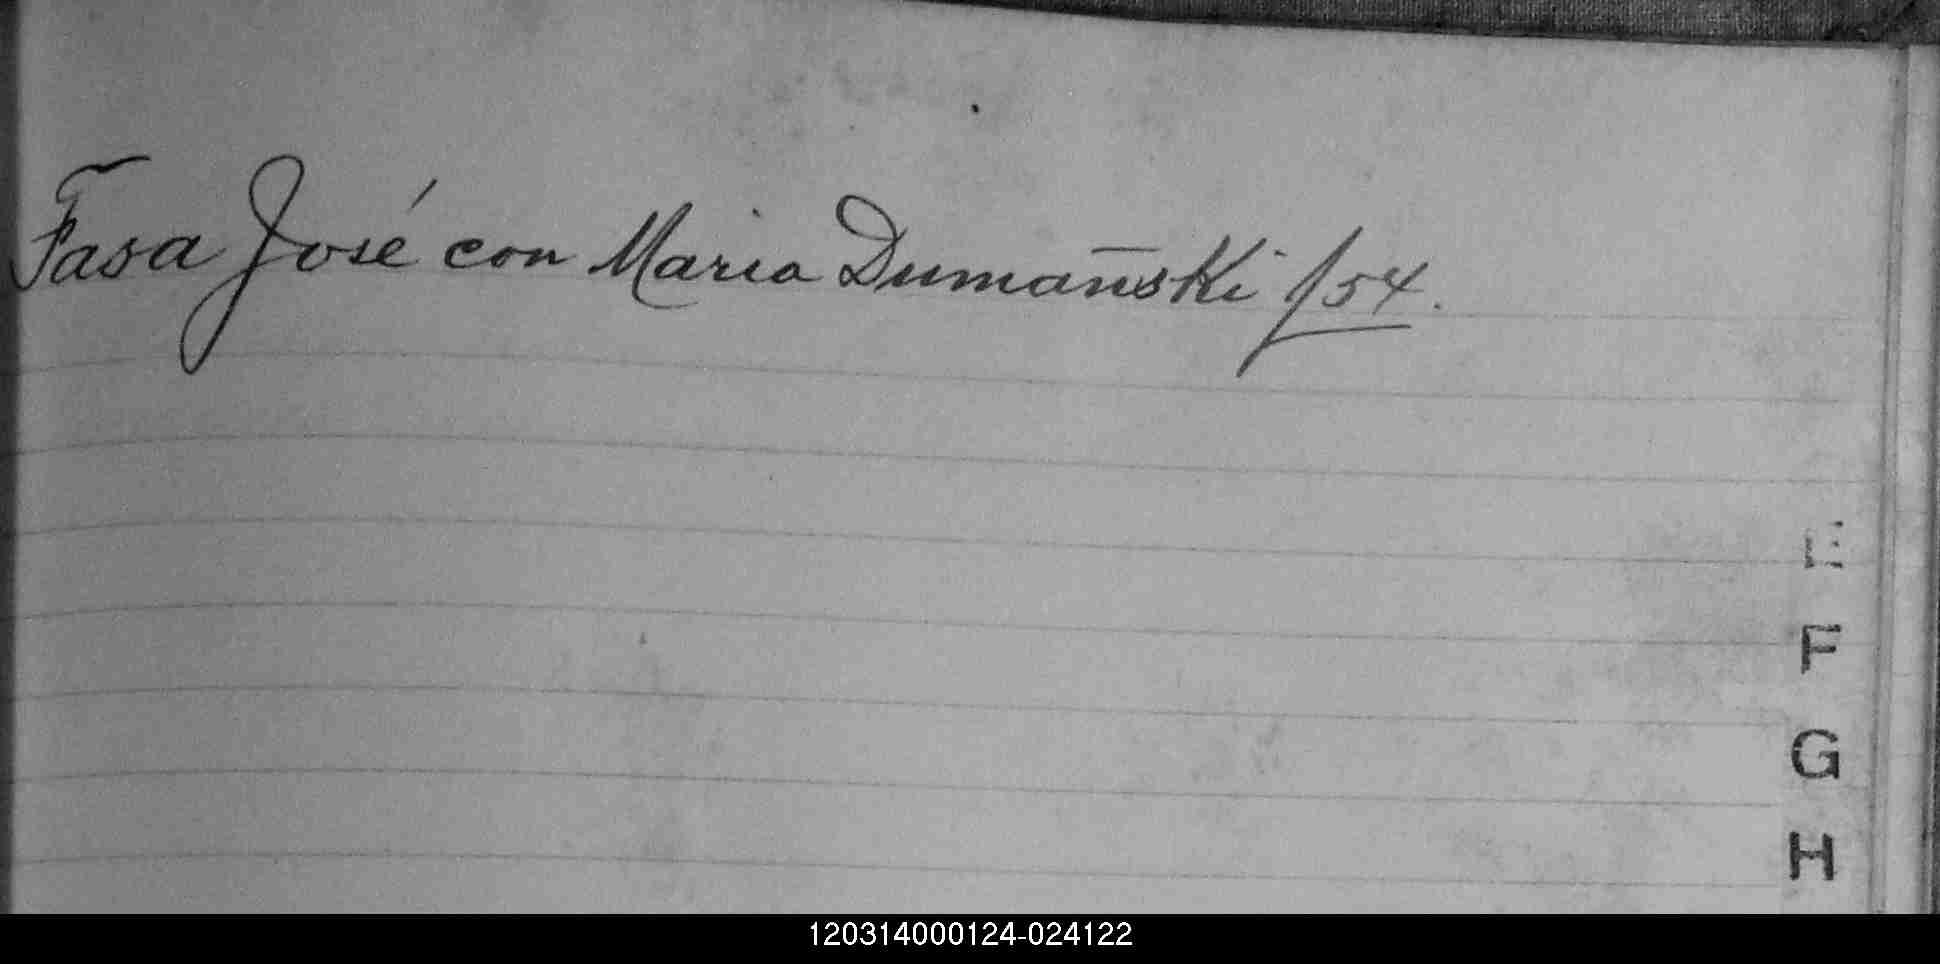 Fasa José con Maria Dumañski f 54.
E
F
G
H
120314000124-024122